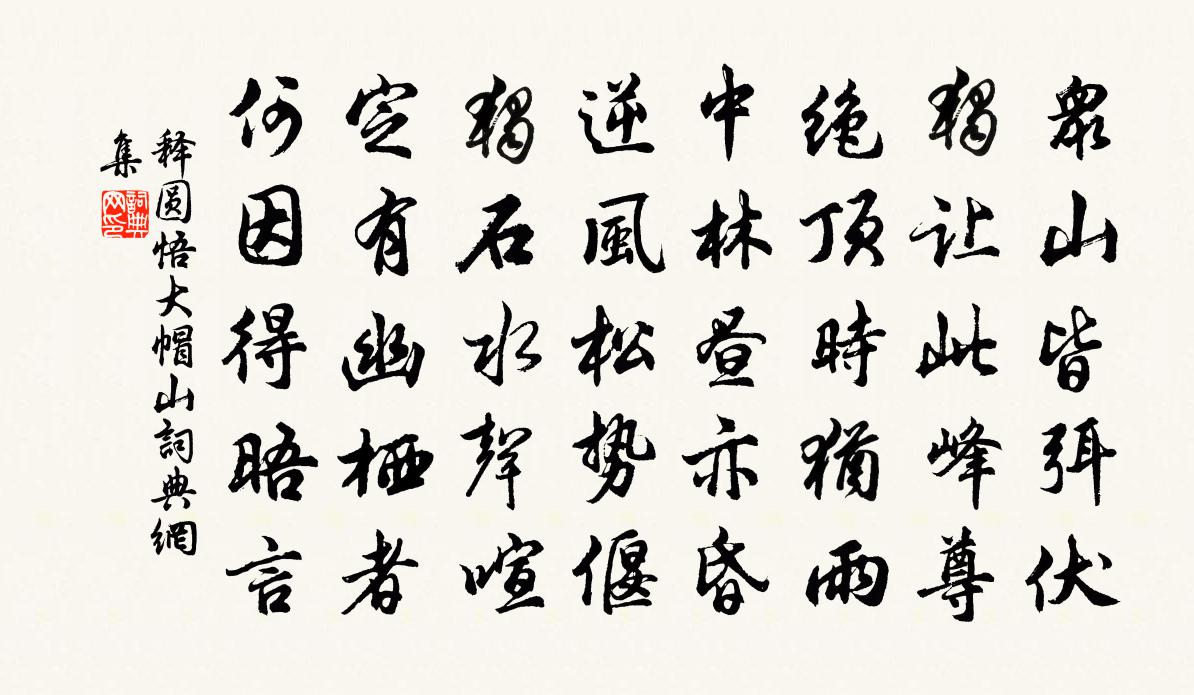 眾山皆弭伏
獨让此峰尊
绝頂時猶雨
中林昼亦昏
逆風松勢偃
獨石水聲喧
定有幽栖者
何因得晤言
释圆悟大帽山詞典網
集
詞典网印